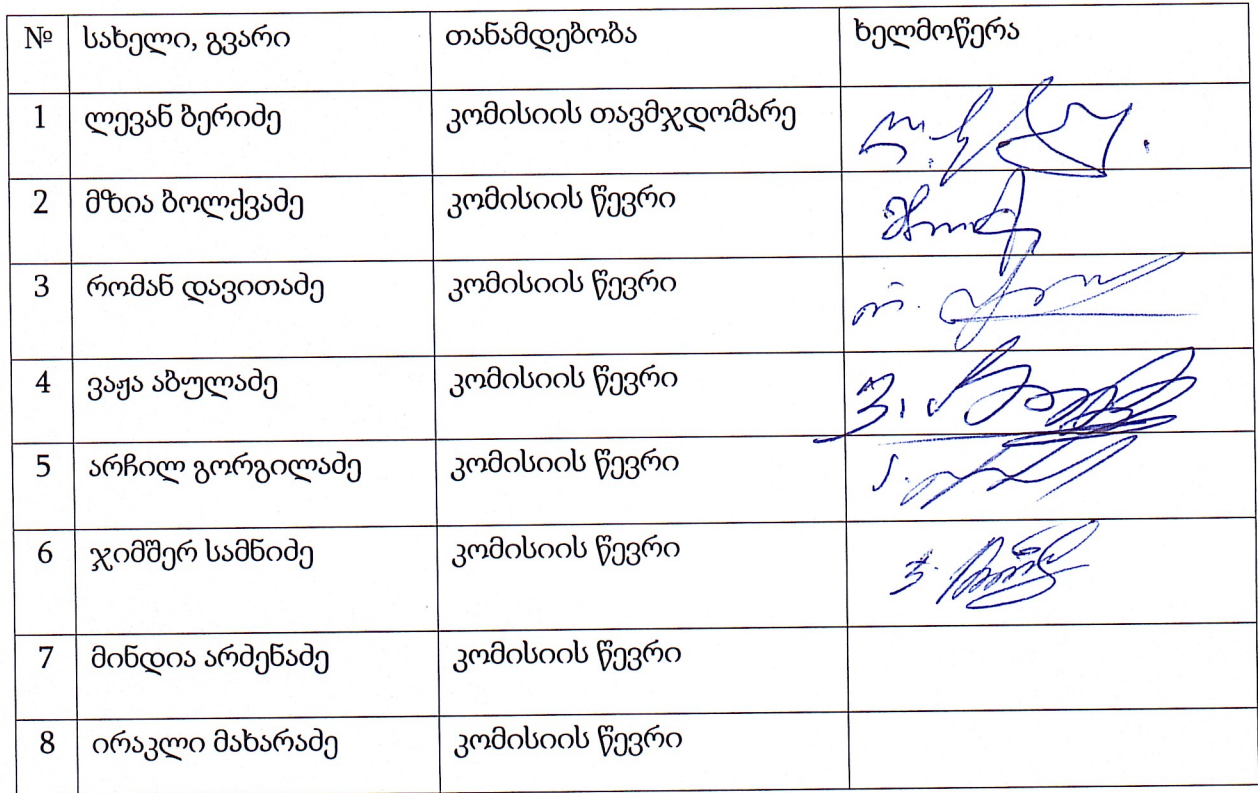 № სახელი, გვარი თანამდებობა ხელმოწერა
1 ლევან ბერიძე კომისიის თავმჯდომარე
2 მზია ბოლქვაძე კომისიის წევრი
3 რომან დავითაძე კომისიის წევრი
4 ვაჟა აბულაძე კომისიის წევრი
5 არჩილ გორგილაძე კომისიის წევრი
6 ჯიმშერ სამნიძე კომისიის წევრი
7 მინდია არძენაძე კომისიის წევრი
8 ირაკლი მახარაძე კომისიის წევრი